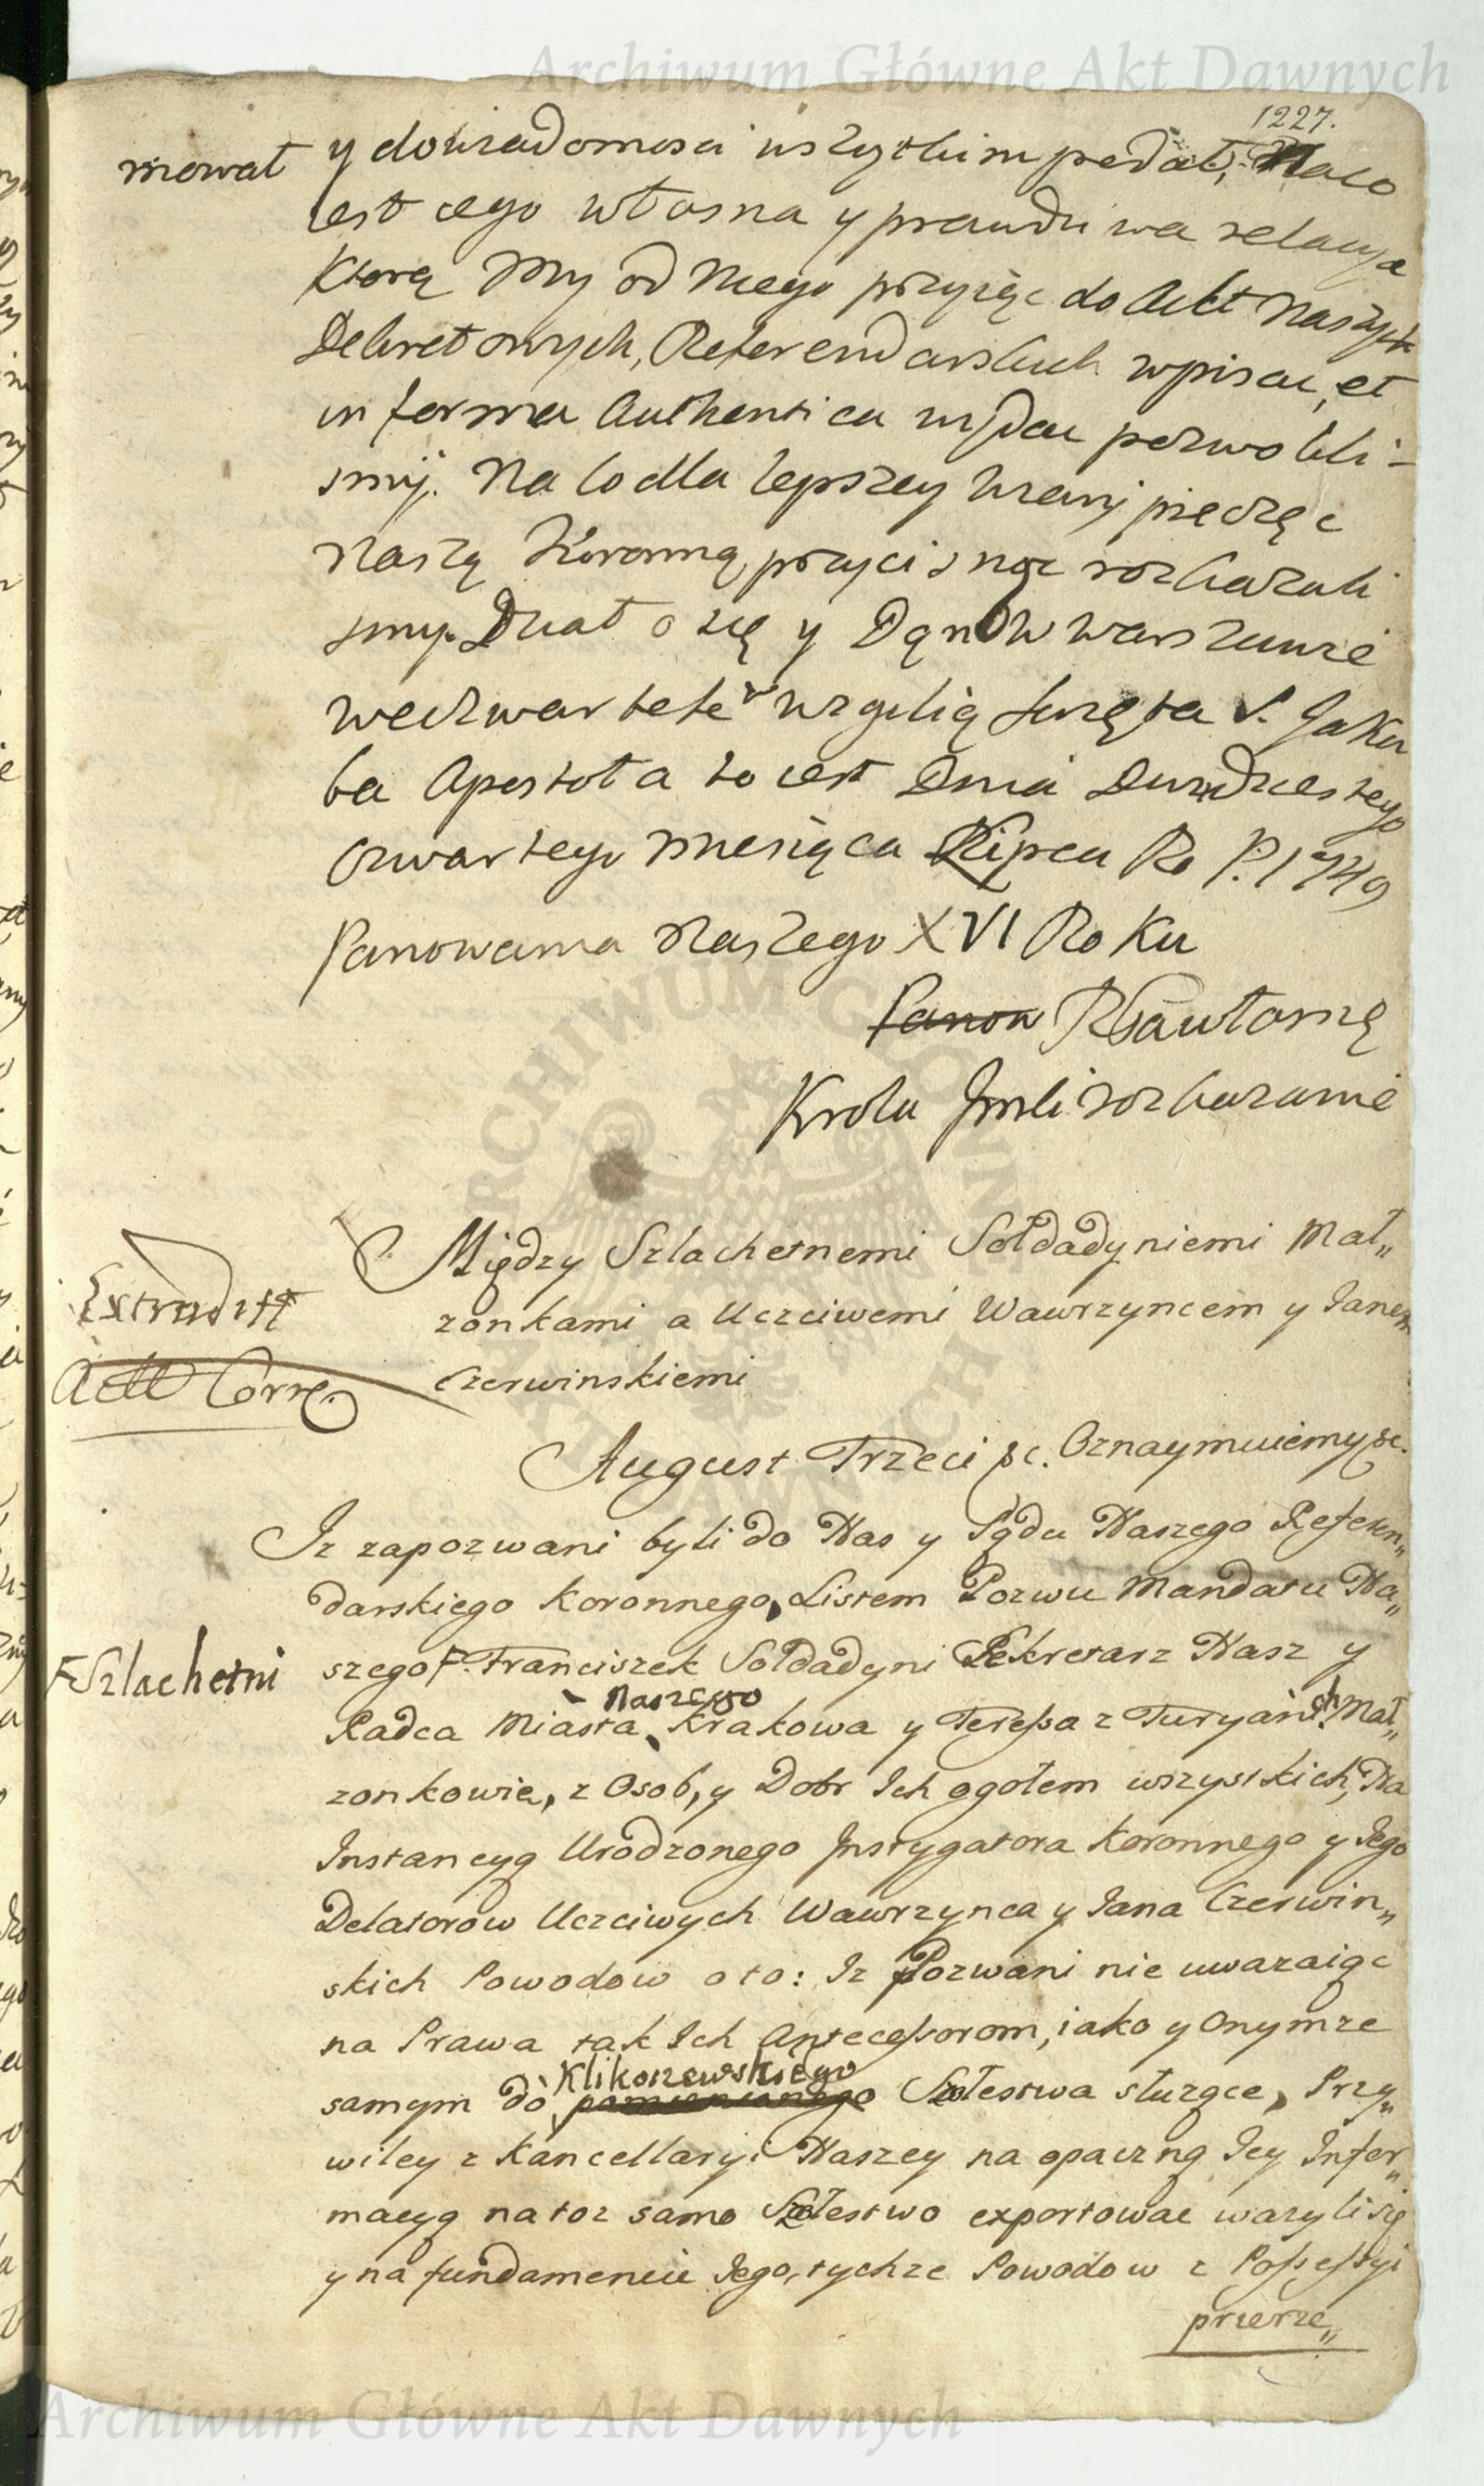 Archiwum Główne Akt Dawnych
1227.
mował y dowiadomosci wszytkim podał, Naco
iest iego własna y prawdziwa relacya
Ktorą My od niego przyiąc do Akt Naszych
Dekretowych, Referendarskich wpisac, et
in forma Authentica wydac pozwolili-
smy. Na co dla lepszey wiary pieczęc
Naszą Koronną przycisnąc rozkazali
smy. Działo się y Dąn w Warszawie
weczwartek w wigilią swięta S. Jaku
ba Apostoła to iest Dnia Dwudziestego
czwartego miesiąca Lipca Ro P. 1749
Panowania Naszego XVI Roku
Panow Własną
Krola Jmści rozkazanie
Extradit
Actt Corr.
Między Szlachetnemi Sołdadyniemi Mał„
zonkami a Uczciwemi Wawrzyncem y Janem
Czerwinskiemi
August Trzeci &c. Oznaymuiemy &c.
Iz zapozwani byli do Nas y Sądu Naszego Referen„
darskiego Koronnego, Listem Pozwu Mandatu Na„
Szlachetni
szego F. Franciszek Sołdadyni Sekretarz Nasz y
Naszego
Radca Miasta Krakowa y Teressa z Turyanich Mał„
zonkowie, z Osob, y Dobr Ich ogołem wszystkich, Na
Instancyą Urodzonego Instygatora Koronnego y Jego
Delatorow Uczciwych Wawrzynca y Jana Czerwin„
skich Powodow oto: Iz Pozwani nie uwazaiąc
na Prawa tak Ich Antecessorom, iako y Onymze
Klikoszewskiego
samym do pomienionego Sołestwa słuzące, Przy„
wiley z Kancellaryi Naszey na opaczną Jey Infor„
macyą na toz samo Sołestwo exportowac wazyli się
y na fundamencie Jego, tychze Powodow z Possessyi
przerze„
Archiwum Główne Akt Dawnych